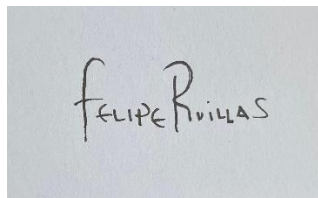 Felipe Ruillas